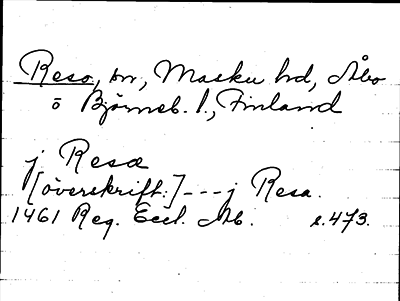 Reso, sn, Masku hd, Åbo
o Björneb. l., Finland
j Resæ
[överskrift:] --- j Resa.
1461 Reg. Eccl. Ab. s. 473.